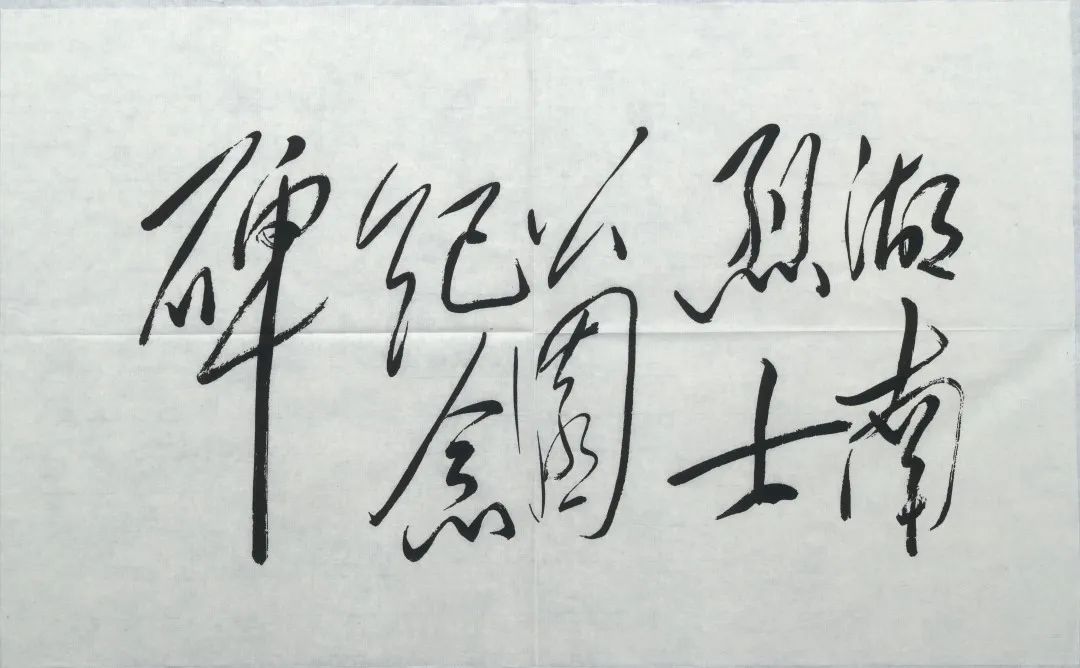 湖南
烈士
公園
紀念
碑